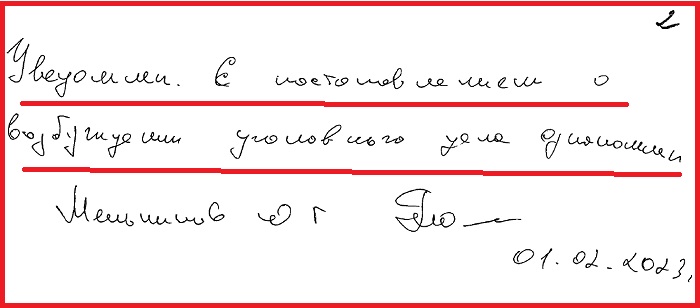 2
Уведомлен. С постановлением о
возбуждении уголовного дела ознакомлен
Мельников Ю Г
01.02.2023.